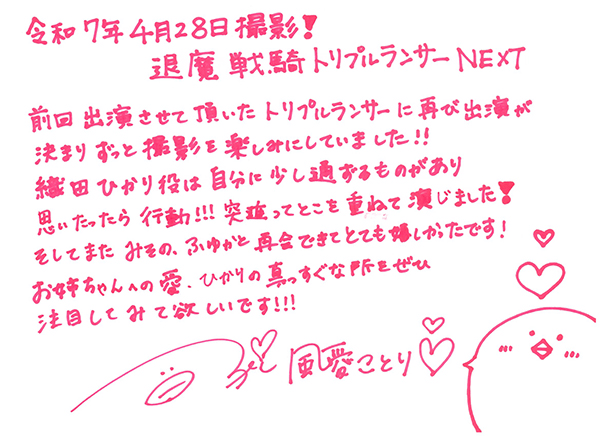 令和7年4月28日撮影!
退魔戦騎トリプルランサーNEXT
前回出演させて頂いたトリプルランサーに再び出演が
決まりずっと撮影を楽しみにしていました!!
織田ひかり役は自分に少し通ずるものがあり
思いたったら行動!!!突迫ってとこを重ねて演じました!
そしてまたみその、ふゆかと再会できてとても嬉しかったです!
お姉ちゃんへの愛、ひかりの真っすぐな所をぜひ
注目してみて欲しいです!!!
風愛ことり